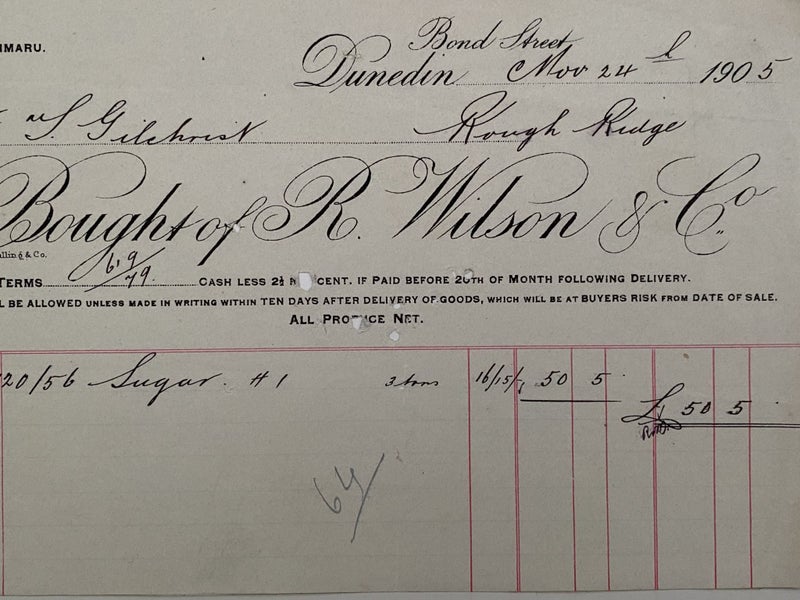 IMARU.
Bond Street
Dunedin Nov 24th 1905
S Gilchrist Rough Ridge
Bought of R. Wilson & Co.
& Co.
TERMS 69/79. CASH LESS 2½ CENT. IF PAID BEFORE 20TH OF MONTH FOLLOWING DELIVERY.
L BE ALLOWED UNLESS MADE IN WRITING WITHIN TEN DAYS AFTER DELIVERY OF GOODS, WHICH WILL BE AT BUYERS RISK FROM DATE OF SALE.
ALL PRODUCE NET.
120/56 Sugar. #1 3 tons 16/15/- 50 5
£ 50 5